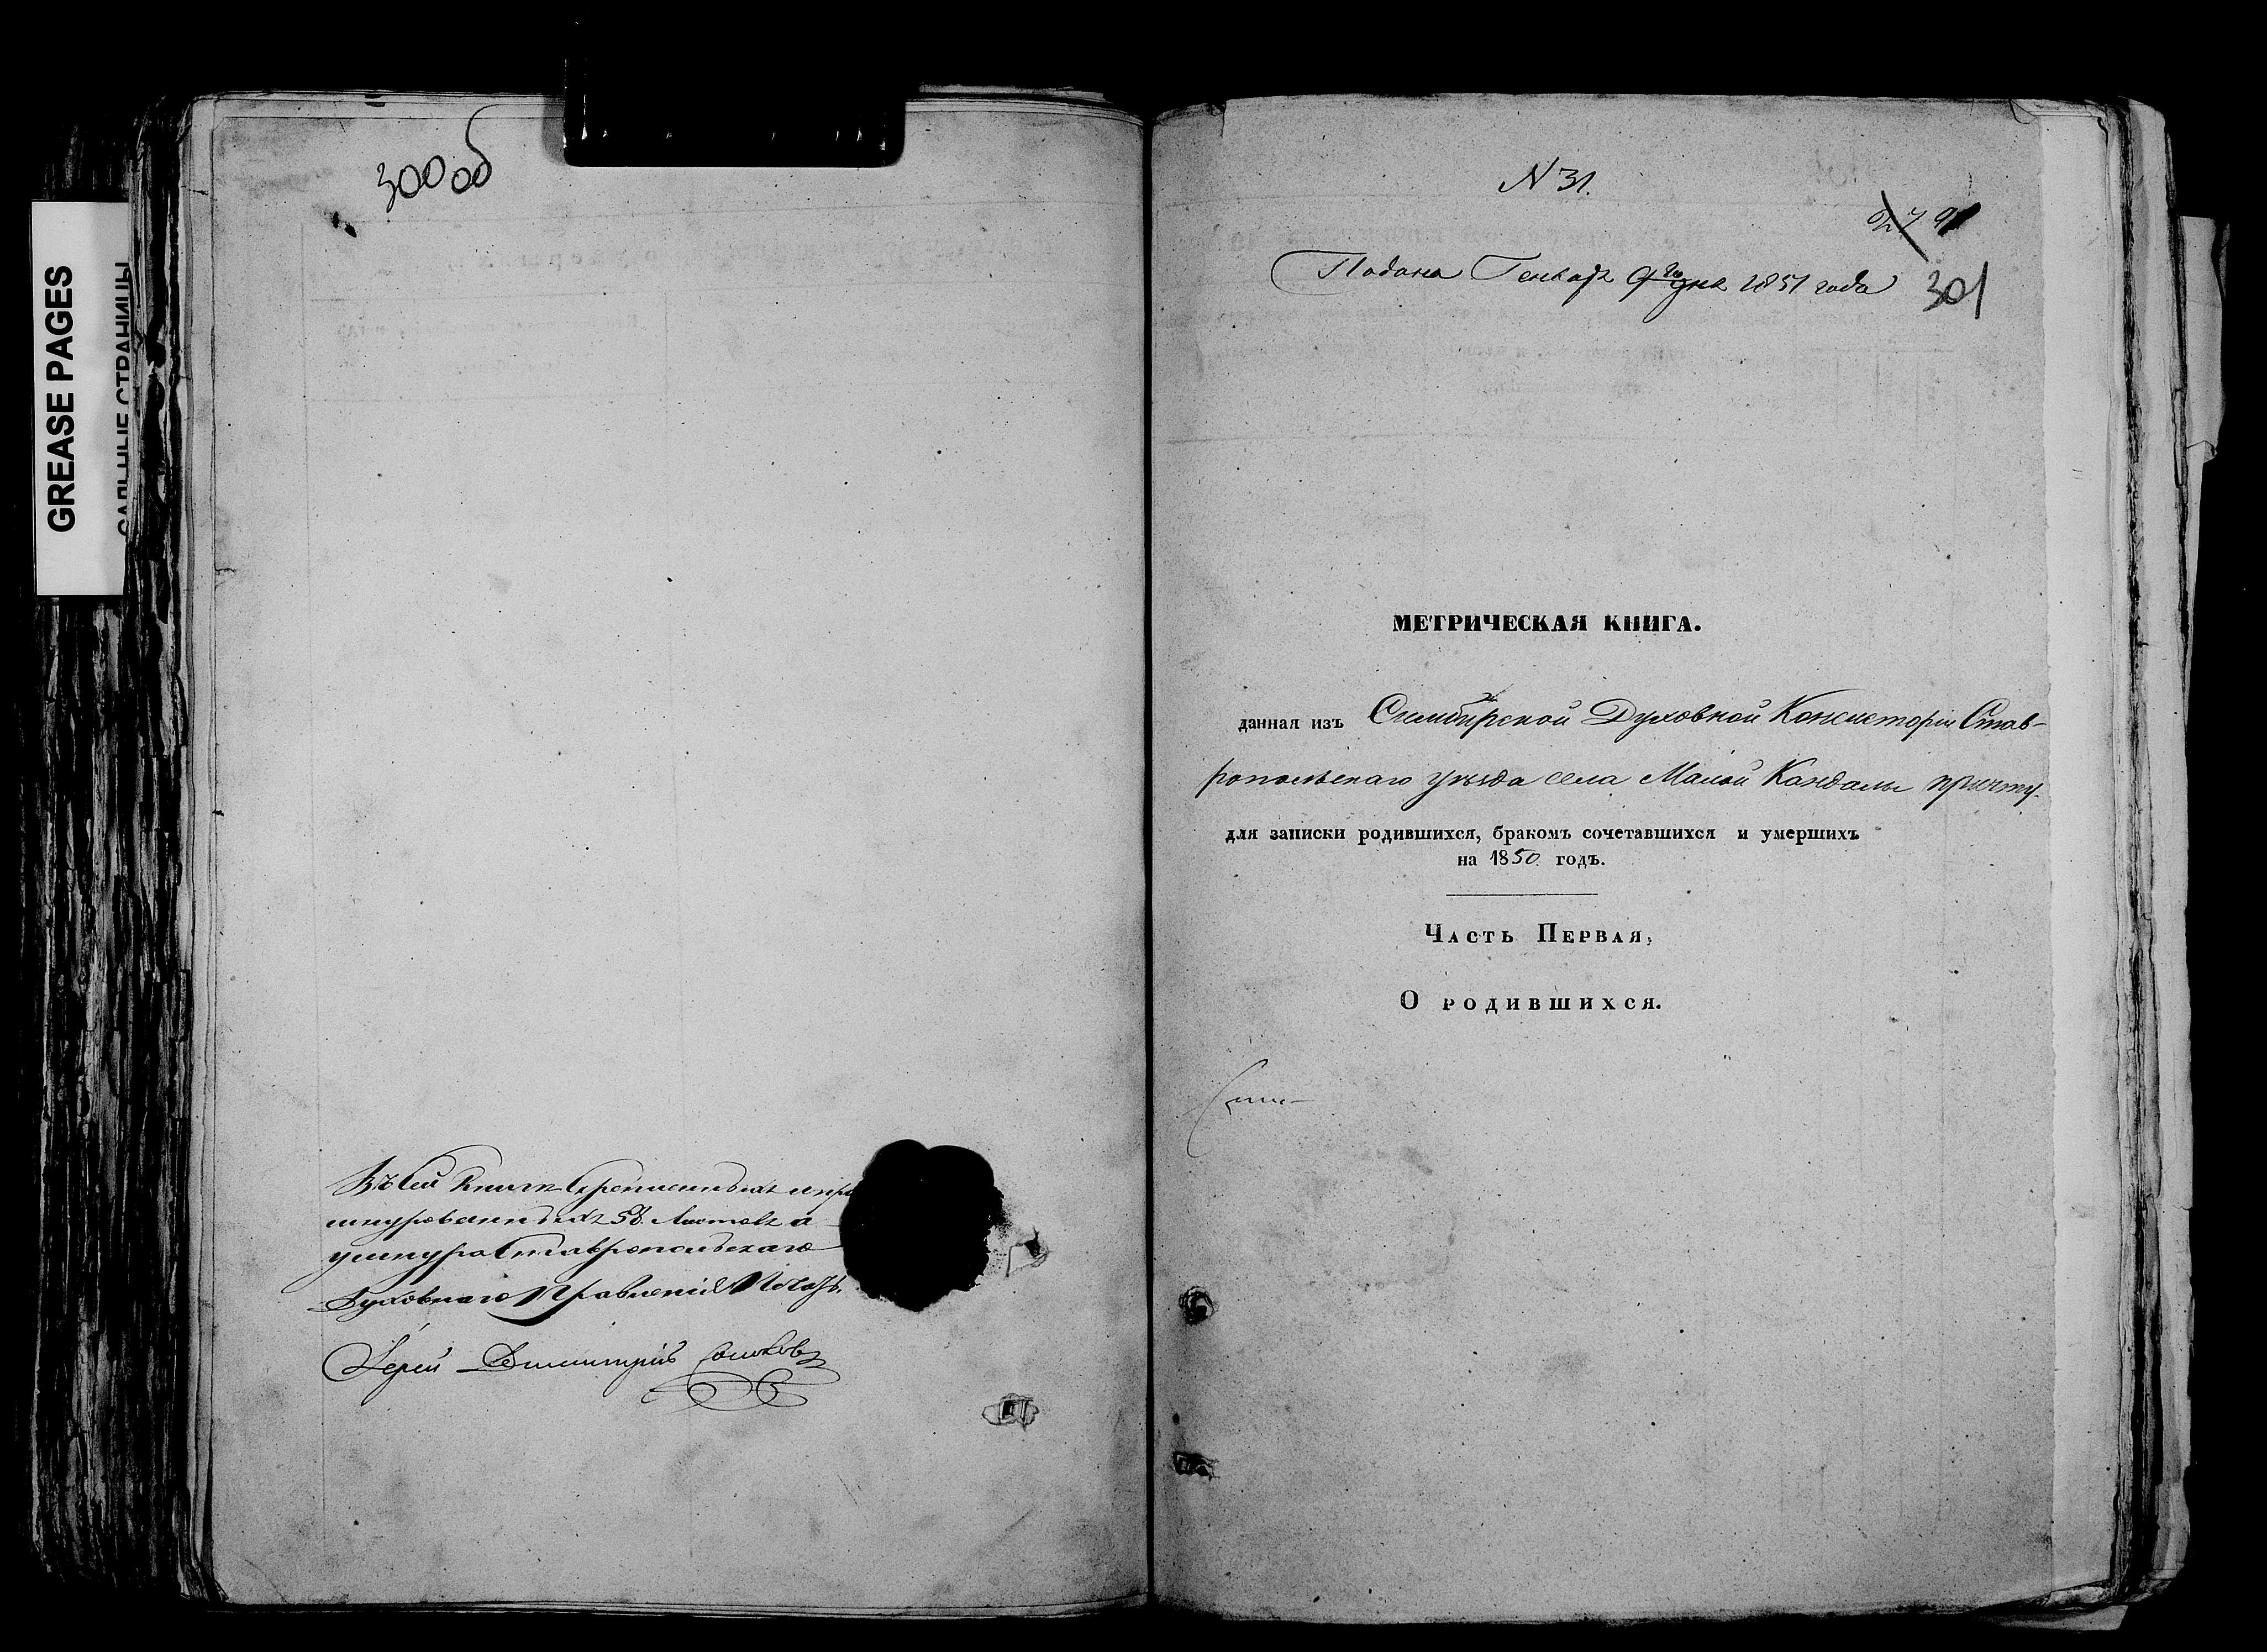 GREASE PAGES
САЛЬНЫЕ СТРАНИЦЫ
300 об
Въ сей Книге скрепленныхъ и про
шнурованныхъ 58. Листовъ а
у шнура Ставропольскаго
Духовнаго Правленія Печать.
Іерей Димитрій
N 31.
279
Подана Генваря 9го дня 1851 года
301
МЕТРИЧЕСКАЯ КНИГА.
данная изъ Симбирской Духовной Консисторіи Став-
ропольскаго уѣзда села Малой Кандалы причту.
для записки родившихся, бракомъ сочетавшихся и умершихъ
на 1850 годъ.
Часть Первая,
О родившихся.